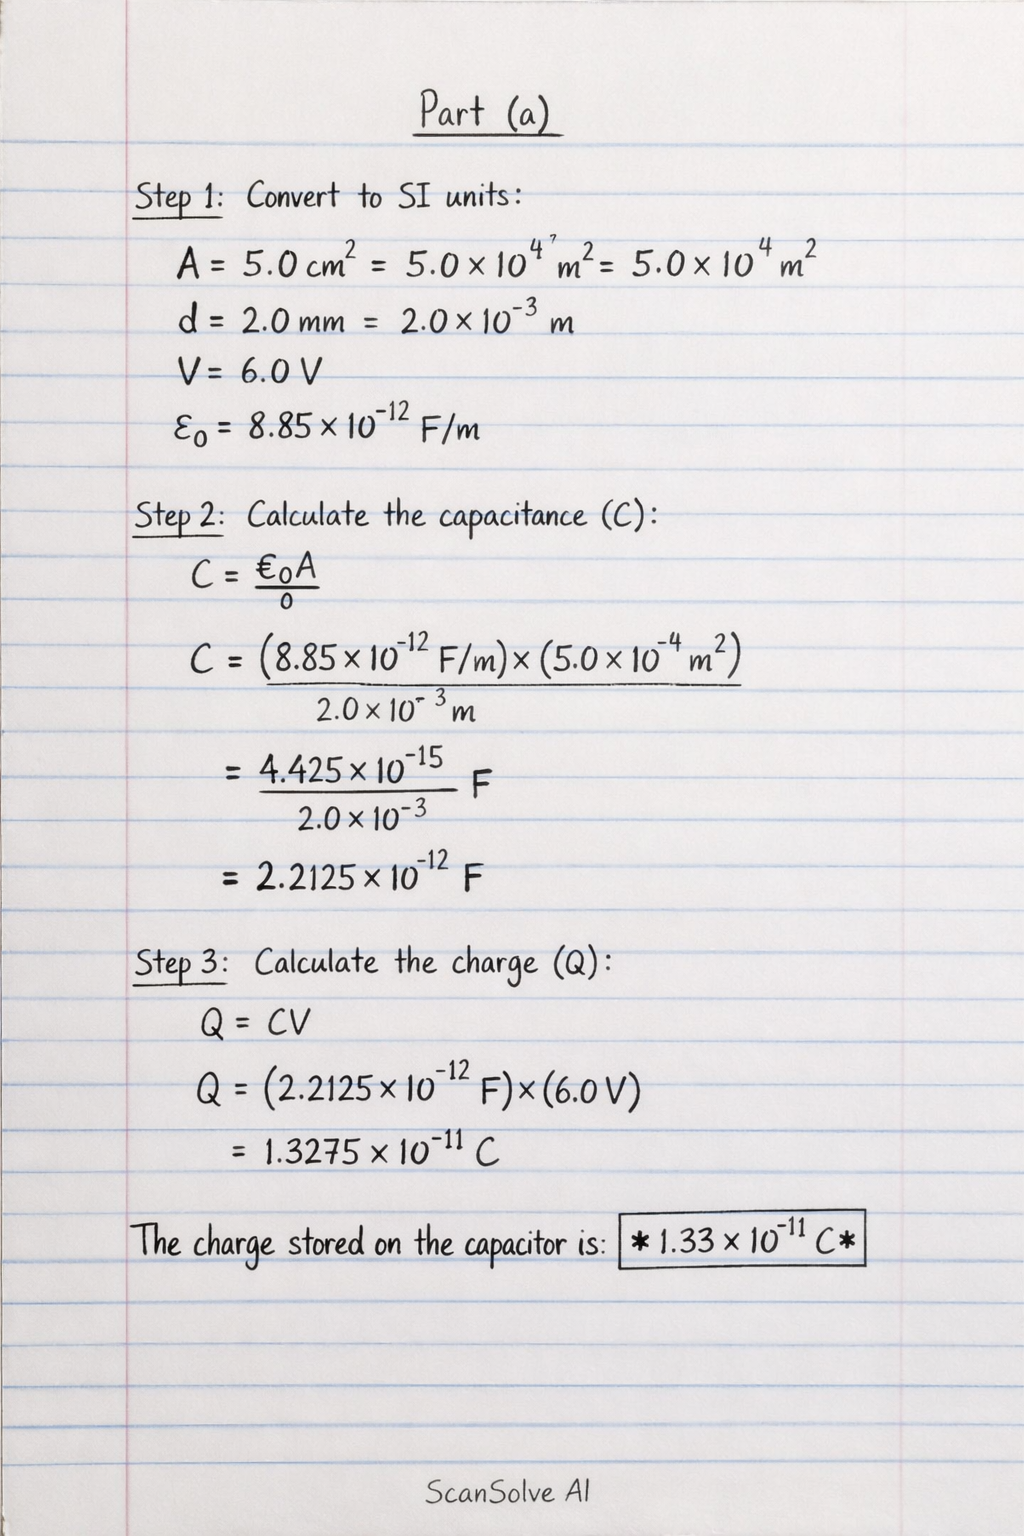 Part (a)
Step 1: Convert to SI units:
A = 5.0 cm² = 5.0 × 10⁴ʼ m² = 5.0 × 10⁴ m²
d = 2.0 mm = 2.0 × 10⁻³ m
V = 6.0 V
ε₀ = 8.85 × 10⁻¹² F/m
Step 2: Calculate the capacitance (C):
C = €₀A
0
C = (8.85 × 10⁻¹² F/m) × (5.0 × 10⁻⁴ m²)
2.0 × 10⁻³ m
= 4.425 × 10⁻¹⁵ F
2.0 × 10⁻³
= 2.2125 × 10⁻¹² F
Step 3: Calculate the charge (Q):
Q = CV
Q = (2.2125 × 10⁻¹² F) × (6.0 V)
= 1.3275 × 10⁻¹¹ C
The charge stored on the capacitor is: * 1.33 × 10⁻¹¹ C*
ScanSolve AI